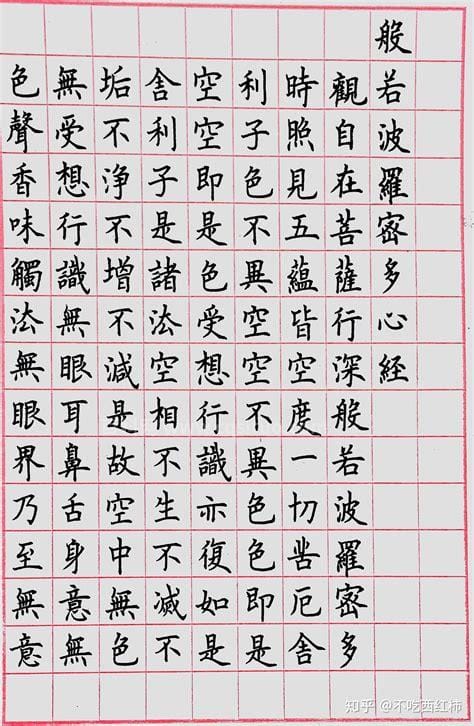 般若波羅密多心経
觀自在菩薩行深般若波羅密多
時照見五蘊皆空度一切苦厄舍
利子色不異空空不異色色即是
空空即是色受想行識亦復如是
舍利子是諸法空相不生不滅不
垢不浄不增不減是故空中無色
無受想行識無眼耳鼻舌身意無
色聲香味觸法無眼界乃至無意
知乎 @不吃西红柿